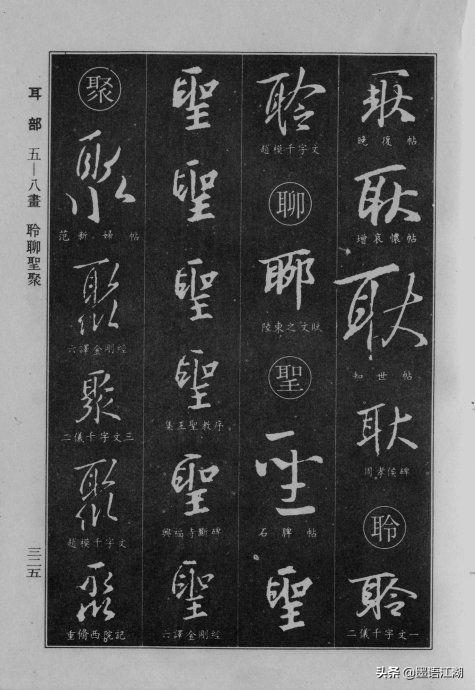 耿
晚復帖
耿
增哀懷帖
耿
知世帖
耿
周孝侯碑
聆
聆
二儀千字文一
聆
趙模千字文
聊
聊
陸柬之文賦
聖
聖
石牌帖
聖
聖
聖
聖
聖
集王聖教序
聖
興福寺斷碑
聖
六譯金剛經
聚
聚
范新婦帖
聚
六譯金剛經
聚
二儀千字文三
聚
趙模千字文
聚
重脩西院記
耳部 五—八畫 聆聊聖聚
三二五
头条 @墨语江湖